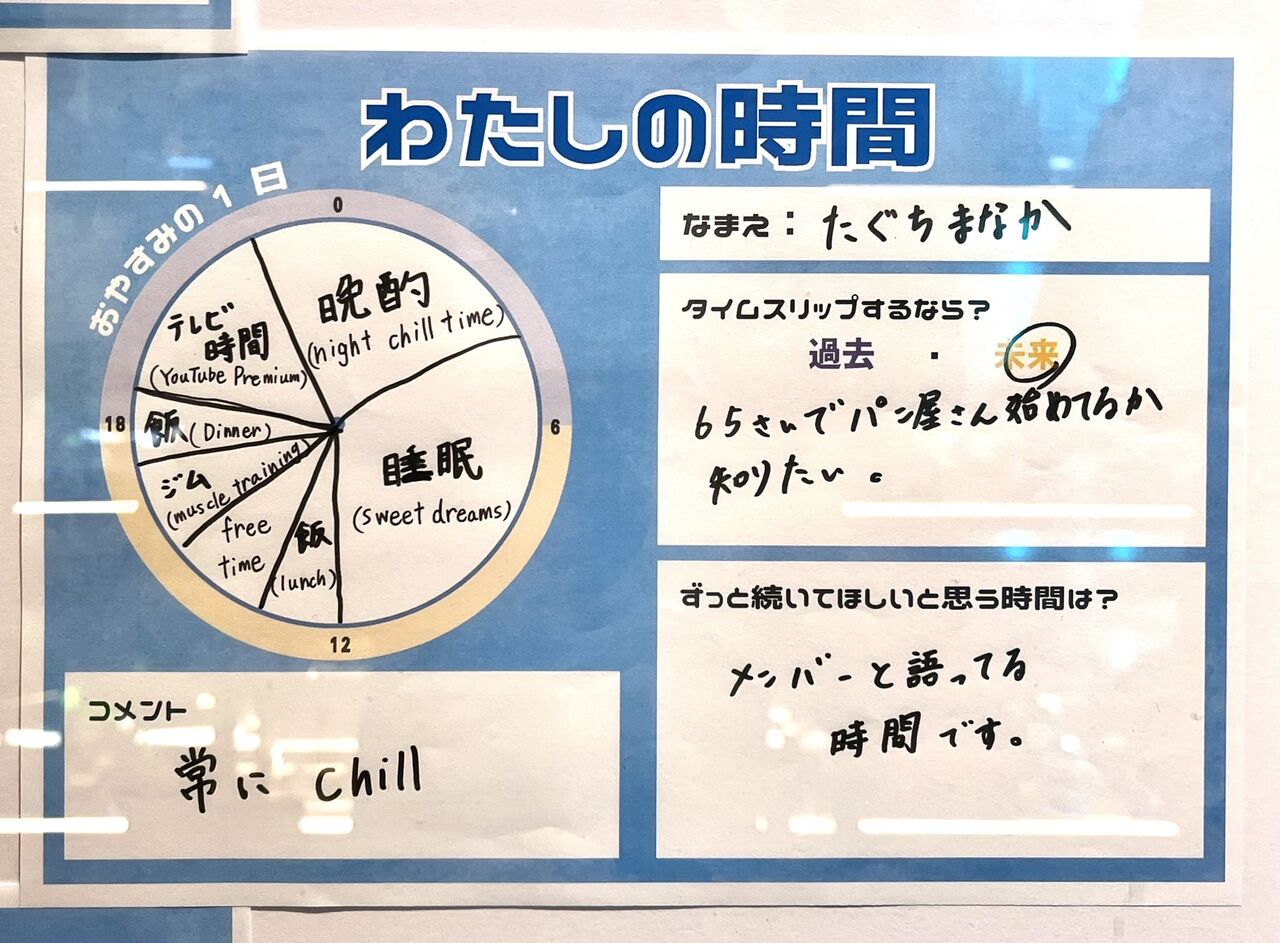 わたしの時間
おやすみの1日
0
6
12
18
晩酌
(night chill time)
睡眠
(sweet dreams)
飯
(lunch)
free
time
ジム
(muscle training)
飯(Dinner)
テレビ
時間
(YouTube Premium)
なまえ：たぐちまなか
タイムスリップするなら？
過去・未来
65さいでパン屋さん始めてるか
知りたい。
ずっと続いてほしいと思う時間は？
メンバーと語ってる
時間です。
コメント
常に chill